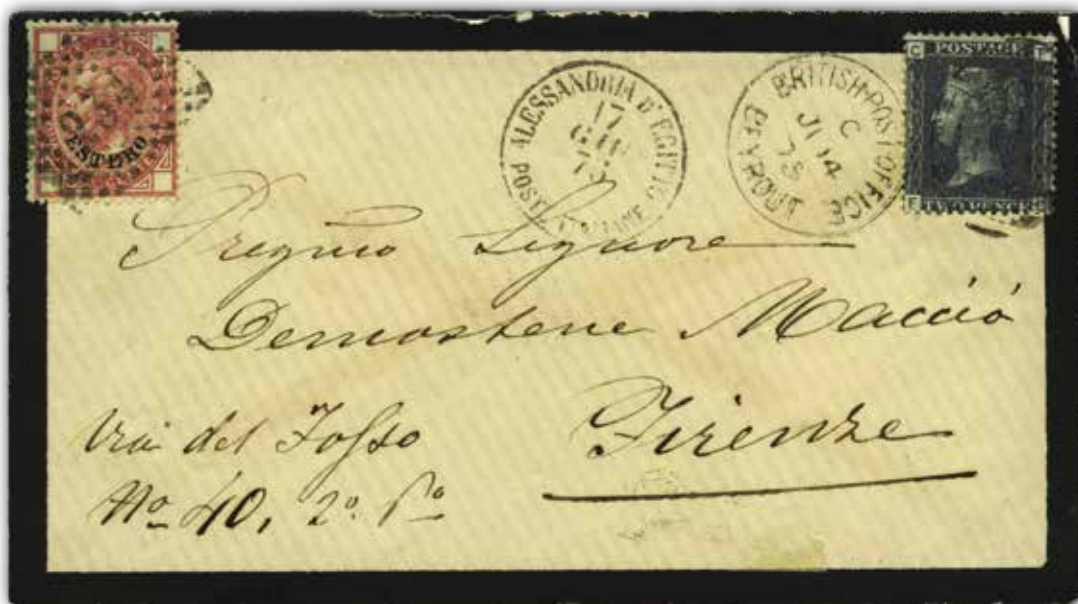 ESTERO
ALESSANDRIA D'EGITTO
17
GIU
73
POSTE ITALIANE
BRITISH-POST-OFFICE
C
JU 14
73
BEYROUT
C POSTAGE T
TWO PENCE
Pregmo Signore
Demostene Macciò
Firenze
Via del Fosso
No 40, 2o Po